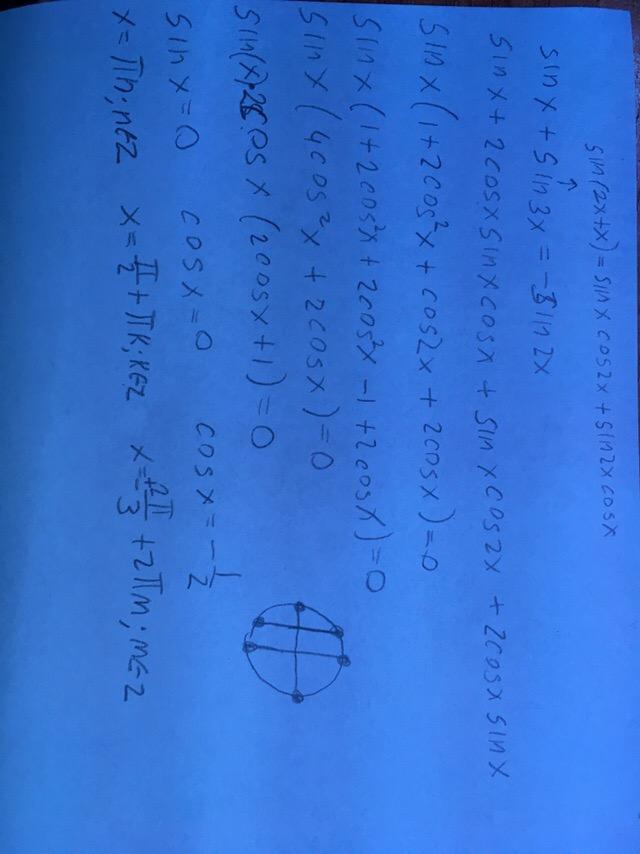 sin(2x+x) = sinx cos2x + sin2x cosx
sin x + sin 3x = -sin 2x
sin x + 2cosx sinx cosx + sin x cos 2x + 2cosx sin x
sin x (1+2cos²x + cos2x + 2cosx) = 0
sin x (1+2cos²x + 2cos²x - 1 + 2cosx) = 0
sin x (4cos²x + 2cosx) = 0
sin(x)·2cos x (2cosx+1) = 0
sin x = 0 cos x = 0 cos x = -1/2
x = πn; n∈Z x = π/2 + πk; k∈Z x = ±2π/3 + 2πm; m∈Z